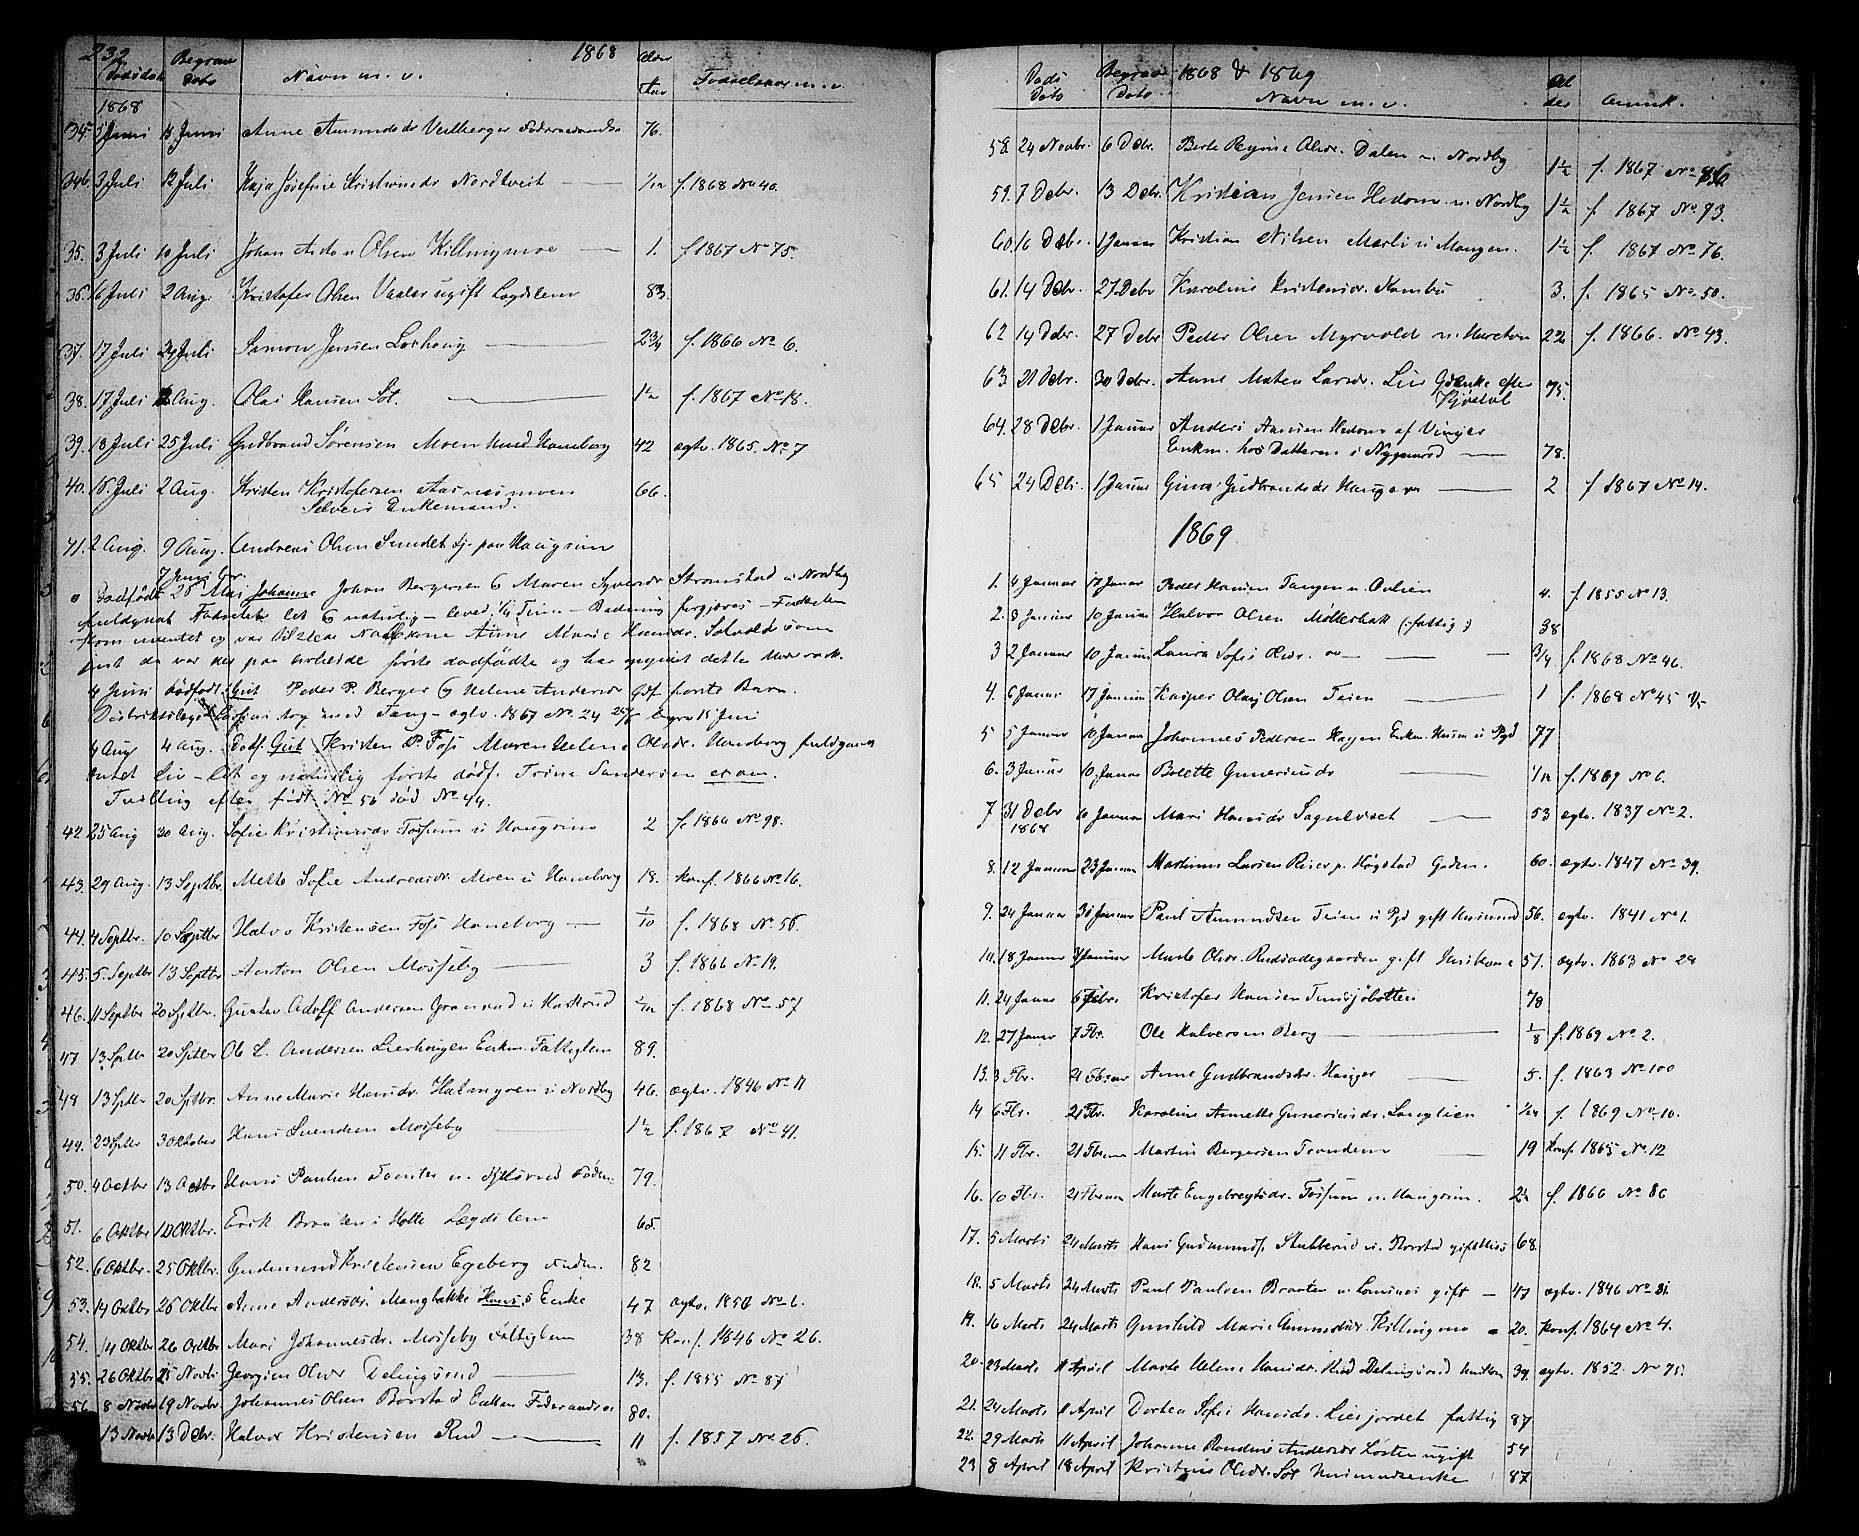 232
1868
Dødsdato Begrav Dato Navn m. v. Alder Aar Fødselsaar m. v.
1868
345 Juni 15 Juni Anne Amundsdr 76.
346 3 Juli 12 Juli Kaja Josefine Kristiansdr Nordtveit 1/12 f. 1868 No 40.
35. 3 Juli 10 Juli Johan Anton Olsen Killingmoe 1. f 1867 No 75.
36. 16 Juli 2 Aug. Kristofer Olsen Vaaler ugift Lægdslem 83.
37. 17 Juli 24 Juli Simon Jensen 2 3/4 f. 1866 No 6.
38. 17 Juli 2 Aug. Olai Hansen Sot. 1 1/2 f. 1867 No 18.
39. 18 Juli 25 Juli Gudbrand Sørensen Moen Haneborg 42 ægtv. 1865. No 7
40. 18. Juli 2 Aug. Kristen Kristofersen Aasnesmoen 66.
Selveier Enkemand.
41. 2 Aug. 9 Aug. Andreas Olsen Sundet paa Haugrim
7 Juni
Dødfødt 28 Mai Johanne Johan Bergersen & Maren Syversdr Strømstad u Nordby
fuldgaaet Fødselen let & naturlig – leved 1/4 Time – Badening forgjæves – Fødselen
kom uventet og var tilstede Nabokone Anne Marie Hansdr. Solvold som
4 Juni dødfødt Gut Peder P. Berger & Helene Andersdr Gdf. første Barn.
Distriktslæge tog med Tang – ægtv. 1867 No. 24 begr 15 Juni
4 Aug 4 Aug. Dødf. Gut Kristen P. Foss Maren Helene Olsdr. Haneborg fuldgaaet
intet Liv – let og naturlig første dødf. Trine Sandersen exam.
Tvilling efter født No 56 død No 44.
42. 25 Aug 30 Aug. Sofie Kristiansdr Fossum u Haugrim 2 f. 1866 No 98.
43. 29 Aug. 13 Septbr. Mette Sofie Andreasdr. Moen u Haneborg 18. Konf. 1866 No 16.
44. 4 Septbr. 10 Septbr Halvo Kristensen Foss Haneborg 1/10 f. 1868 No. 56.
45. 5. Septbr 13 Septbr Anton Olsen Mosseby 3 f. 1866 No 19.
46. 11 Septbr 20 Sptbr. Gustav Adolf Andersen Gramrud u Kaserud 1/12 f. 1868 No 57
47 13 Sptbr 20 Sptbr Ole L. Andersen Lierhougen Enkm. Fattiglem 89.
48 13 Sptbr 20 Sptbr. Anne Marie Hansdr. Halmgren u Nordby 46. ægtv. 1846 No 11
49. 23 Sptbr 3 Oktober Hans Svendsen Mosseby 1 1/2 f. 1867 No 41.
50. 4 Octbr 13 Octbr Hans Paulsen Tomter u. Føder. 79.
51. 6 Oktbr 18 Oktbr. Erik Braaten i Holte Lægdslem 65.
52. 6 Oktbr. 25 Oktbr. Gudmund Kristensen Egeberg 82
53. 14 Oktbr 26 Oktbr Anne Andersdr. Mangbakke Hans's Enke 47 ægtv. 1850 No 6.
54. 14 Oktbr 26 Octbr Mari Johannesdr. Mosseby Fattiglem 38 Konf. 1846 No 26.
55. 26 Oktbr 15 Novbr Georgine Olsdr Delingsrud 13. f. 1855 No 87
56. 8 Novbr 19 Novbr. Johannes Olsen Borstad Enkem Føderaadsm 80.
13 Novbr 13 Debr. Halvor Kristensen Rud 11 f. 1857 No. 26.
Døds Dato Begrav Dato 1868 & 1869 Navn m. v. Alder Anmk.
58. 24 Novbr. 6 Debr. Berte Regine Olsdr. Dalen u. Nordby 1 1/2 f. 1867 No
59. 7 Debr. 13 Debr. Kristian Jensen Hedom u. Nordby 1 1/2 f 1867 No 93.
60. 16 Debr. 1 Januar Kristian Nilsen Marli u Mangen. 1 1/2 f. 1867 No 76.
61. 14 Debr. 27 Debr Karoline Kristiansdr. Kambu 3. f. 1865 No 50.
62 14 Debr. 27 Debr Peder Olsen Myrvold u. Hareton 2 1/2 f. 1866. No 43.
63. 21 Debr. 30 Debr. Anne Matea Larsdr. Lie Gdenke efter 75.
Kjøstol
64. 28 Debr. 1 Januar Anders Hansen Hedom af Vinger
Enkm. hos Datteren i Nygaard 78.
65 24 Debr. 1 Januar Gina Gudbrandsdr Haugen 2 f 1867 No 14.
1869
1. 4 Januar 17 Januar Peder Hansen Tangen u. Aulien 4. f. 1855 No 13.
2. 3 Januar 10 Januar Halvor Olsen Møllerbak (: fattig :) 38
3 2 Januar 10 Januar Laura Sofie Olsdr. 3/4 f. 1868 No 46.
4. 6 Januar 17 Januar Kasper Olaus Olsen Teien 1 f. 1868 No 45
5 5 Januar 10 Januar Johannes Pedersen Haugen Enkm. Husm u Pgd 77
6. 3 Januar 10 Januar Bolette Guneriusdr 1/12 f. 1869 No 6.
7 31 Debr 1868 10 Januar Mari Hansdr Sagneliset 53 ægtv. 1837 No 2.
8. 12 Januar 23 Januar Martinus Larsen Reier p. Høgstad Gaden. 60. ægtv. 1847 No 39.
9. 24 Januar 31 Januar Paul Amundsen Teien u Pgd gift Husmand 56. ægtv. 1841 No 1.
10. 18 Januar 31 Januar Marte Olsdr. Rudsødegaarden gift Huskone 51. ægtv. 1863 No 28
11. 24 Januar 5 Febr. Kristofer Hansen Tunsjøbotten 7/8
12. 27 Januar 7 Fbr. Ole Halvorsen Berg 1/8 f. 1869 No 2.
13. 3 Fbr. 21 Februar Anne Gudbrandsdr. Hauger 5. f. 1863 No 100
14 6 Fbr. 21 Fbr. Karoline Annette Guneriusdr. Langlien 1/24 f. 1869 No 10.
15. 11 Fbr. 21 Februar Martin Bergersen Trandem 19 Konf. 1865 No 12
16. 10 Fbr. 21 Februar Marte Engebregtsdr. Fossum u. Haugrim. 2 1/2 f. 1866 No 86
17. 5 Marts 24 Marts Hans Gudmunds. Stubberud u. Korstad gift 68.
18. 5 Marts 24 Marts Paul Paulsen Braaten u. gift – 47 ægtv. 1846 No 31.
19. 16 Marts 24 Marts Gunhild Marie Amundsdr. Killingmo 20. Konf. 1864 No 4.
20. 23 Marts 11 April Marte Helene Hansdr. Rud Delingsrud Huskon 39 ægtv. 1852. No 75.
21. 24 Marts 11 April Dortea Sofie Hansdr. Liesjordet fattig 87
22. 29 Marts 11 April Johanne Randine Andersdr Losten ugift 54
23 8 April 18 April Kristine Olsdr. Sot Husmandsenke 87